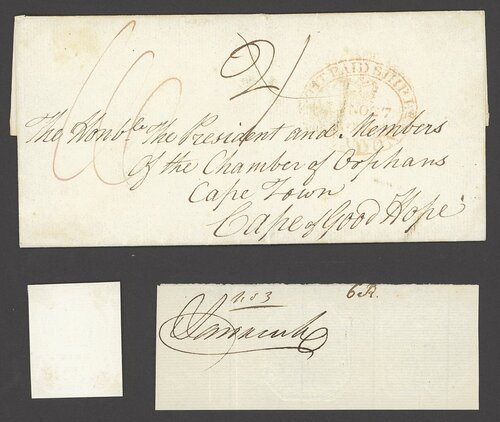 2/
POST PAID SHIP LR
NO 27
The Honble The President and Members
Of the Chamber of Orphans
Cape Town
Cape of Good Hope
No 3
6 R.